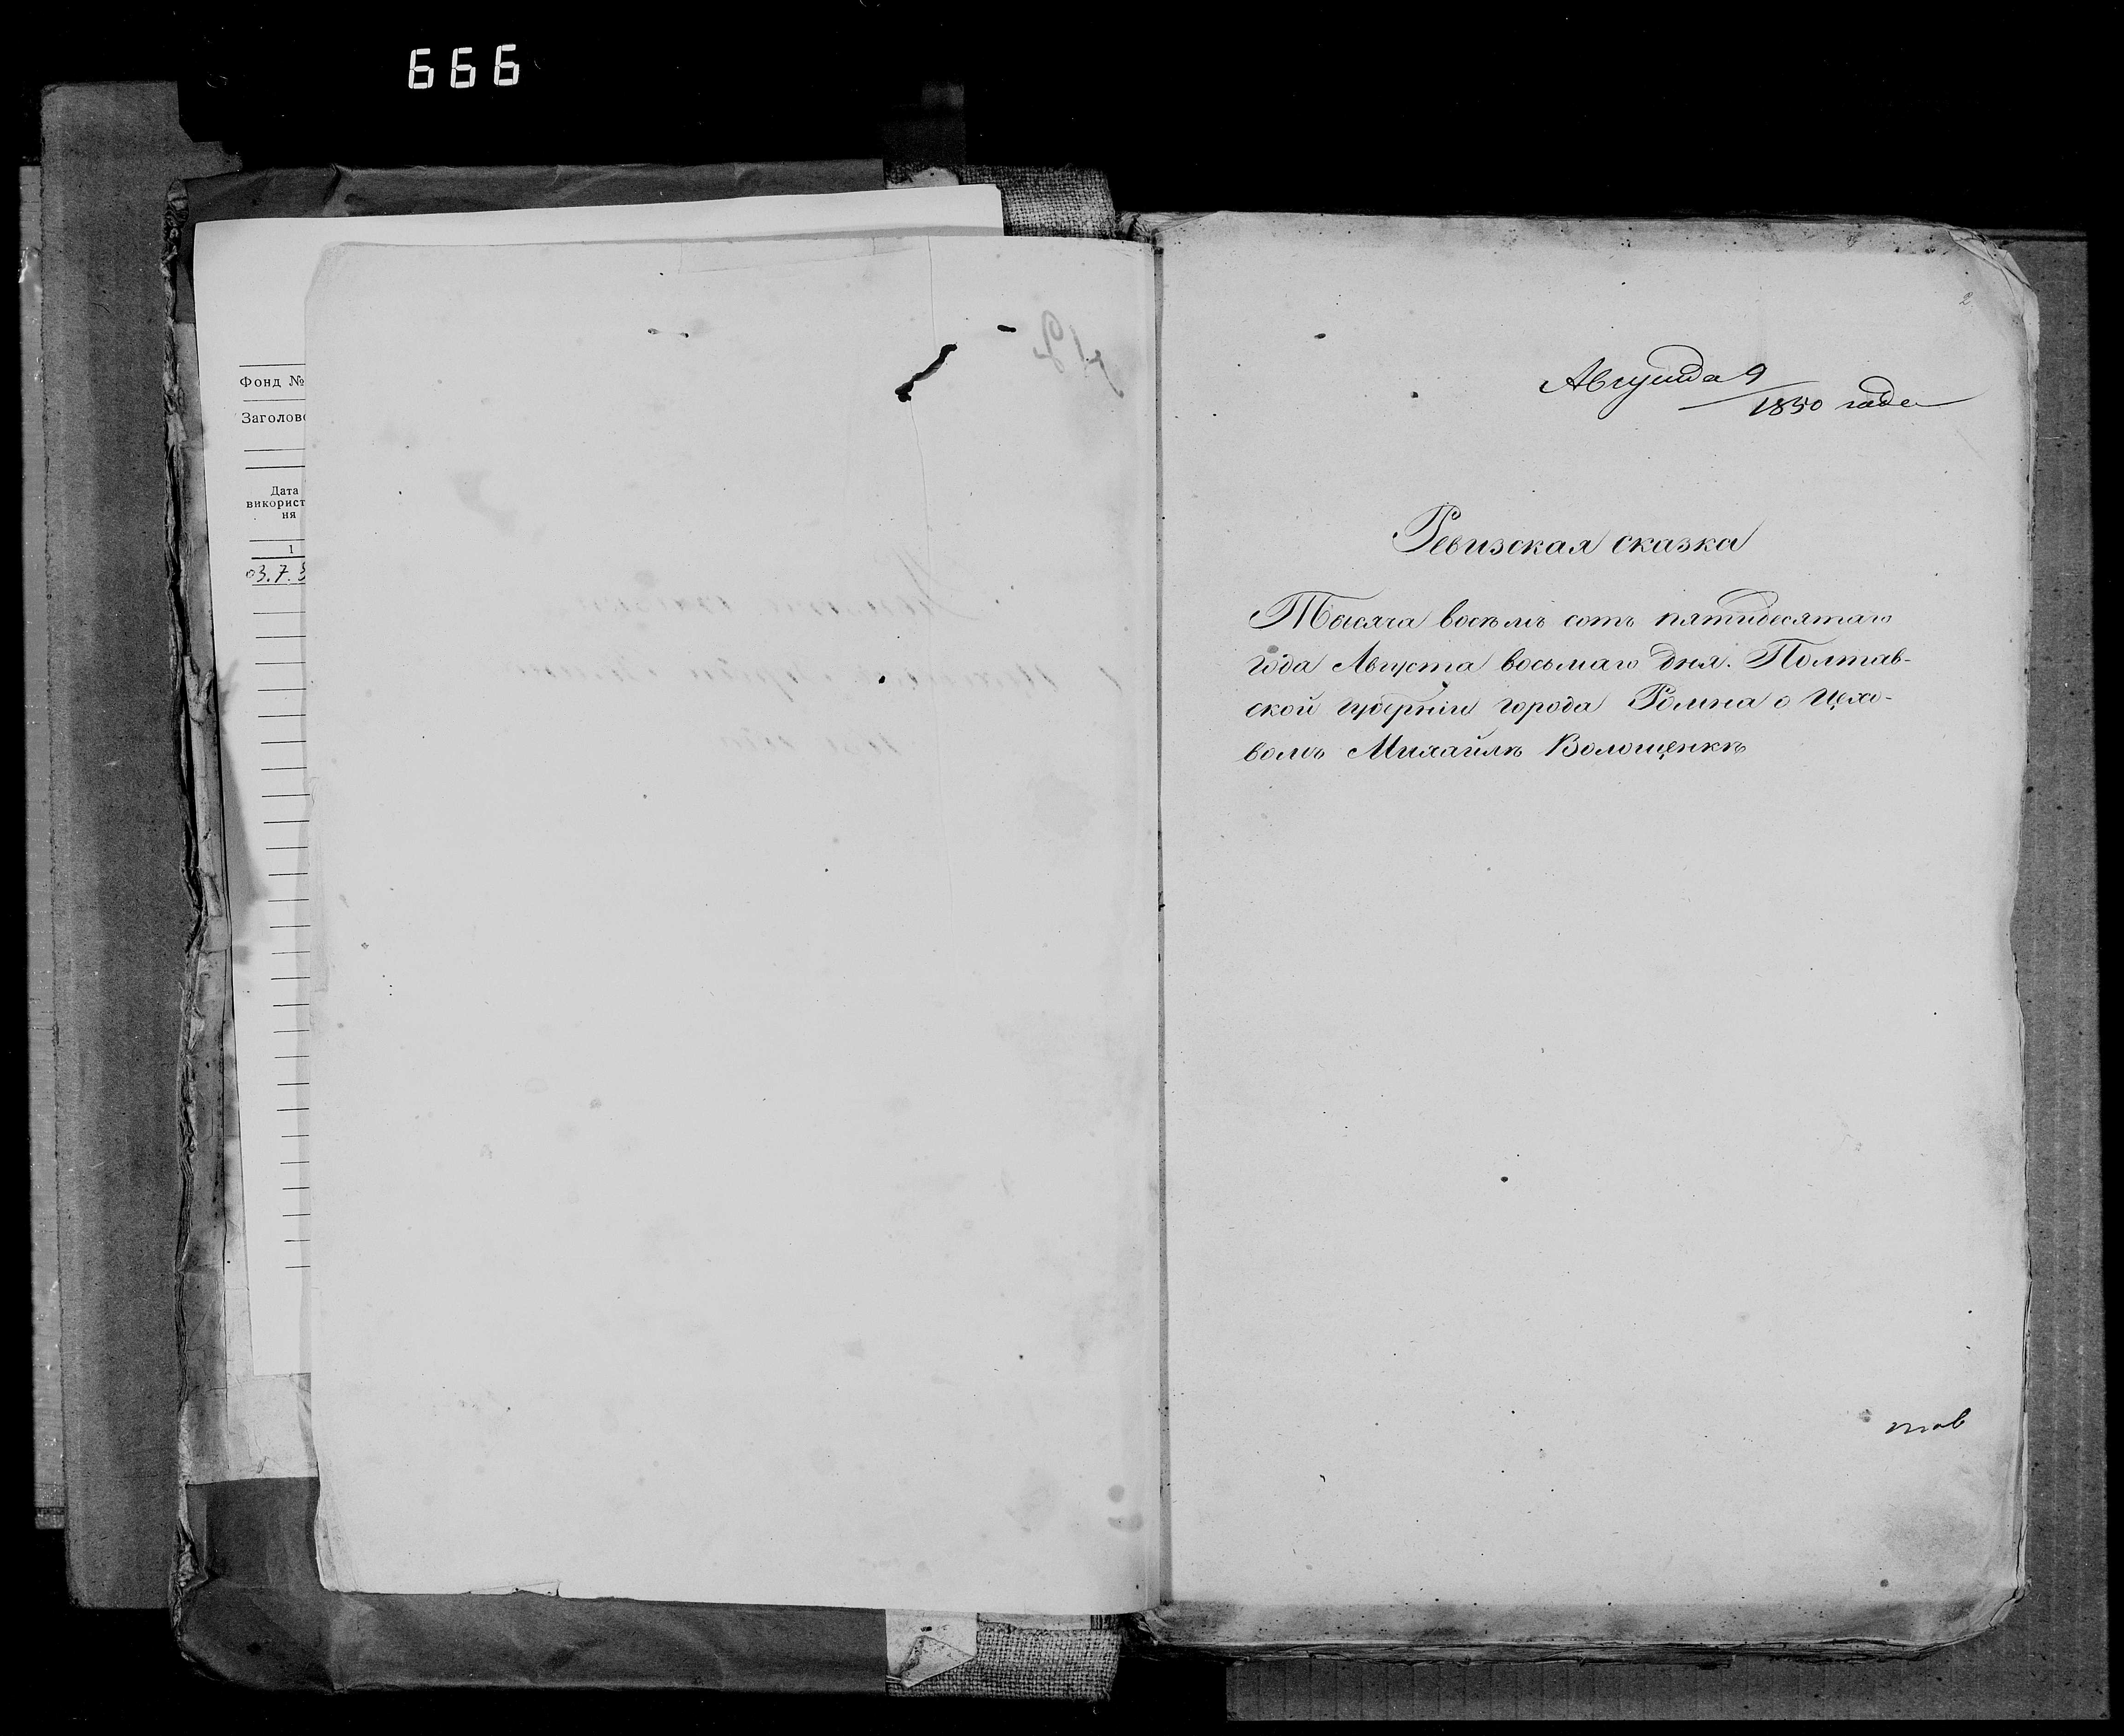 666
Фонд №
Заголово
Дата
використ
ня
1
03.7.
2
Августа 9
1850 года
Ревизская сказка
Тысяча восемь сотъ пятидесятаго
года Августа восьмаго дня. Полтав-
ской губерніи города Ромна о цехо-
вомъ Михайлѣ Волощенкѣ